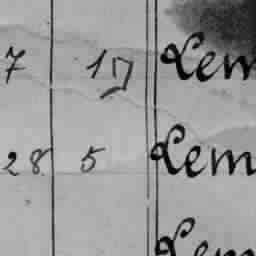 7 17 Lem
28 5 Lem
Lem